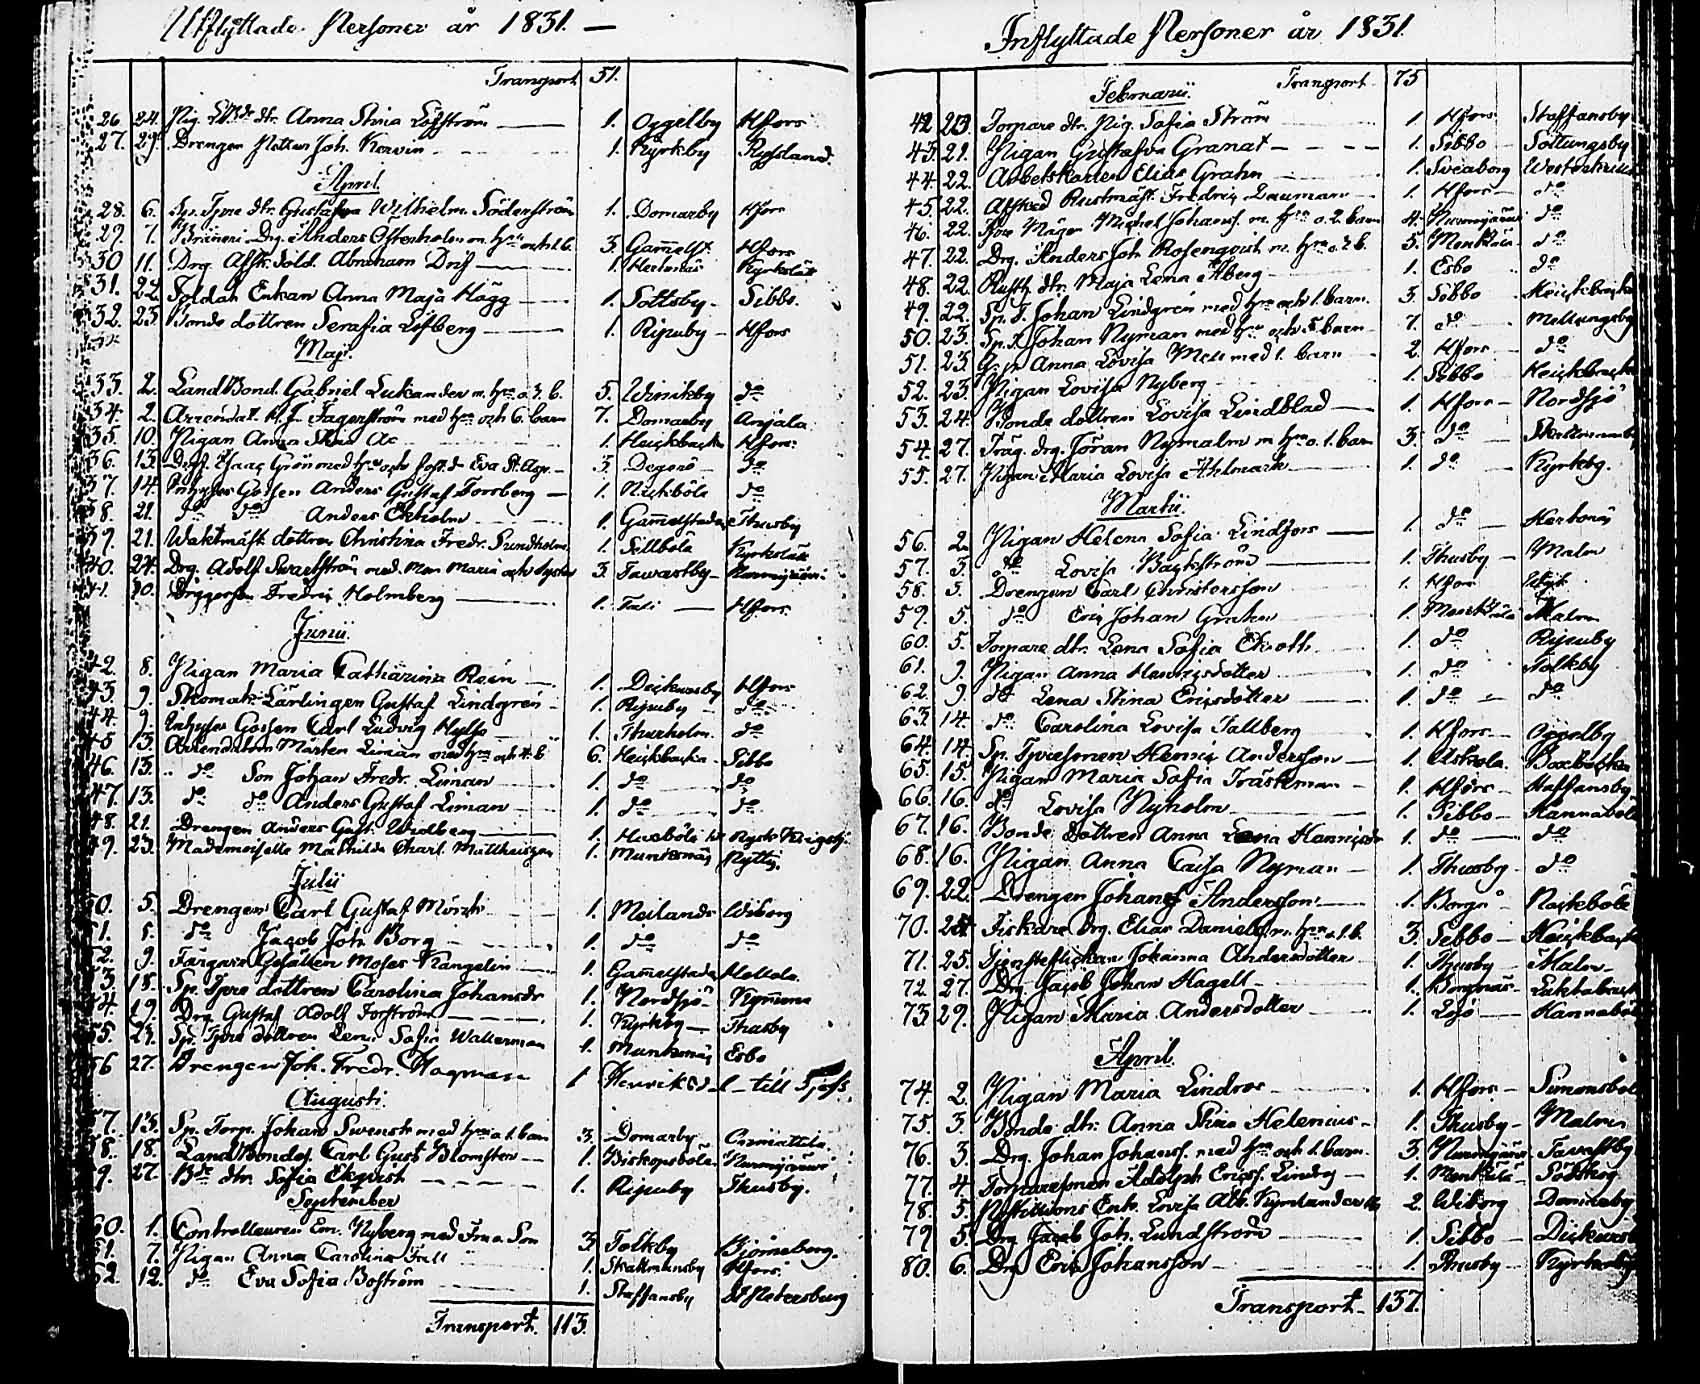 Utflyttade Personer år 1831. —
Transport 51.
26. 24. Pig. dtr. Anna Stina Löfström 1. Oggelby Hfors
27. 29. Drengen Petter Joh. Kervin 1. Kyrkby Ryssland.
April.
28. 6. Sp. Tpre dtr. Gustafva Wilhelm. Söderström 1. Domarby Hfors
29. 7. Bräneri Drg. Anders Osterholm m. hru och 1 b. 3. Gammelst. Hfors
30 11. Drg. Afsk. Sold. Abraham Dris 1. Hertonäs Kyrkslätt
31. 22. Soldat Enkan Anna Maja Hägg 1. Sottsby Sibbo.
32. 23. Bonde dottren Serafia Löfberg 1. Ripuby Hfors
Maji.
33. 2. Land Bond. Gabriel Lukander m. hru o. 3. b. 5. Winikby do
34. 2. Arrendat. Fagerström med hru och 6. barn 7. Domarby Anjala
35. 10. Pigan Anna Stina 1. Heickbacka Hfors
36. 13. Isaac Grön med hru och Eva St. 3. Degerö do
37. 14. Inhyses Gossen Anders Gustaf Forsberg 1. Nackböle do
38. 21. do do Anders Ekholm 1. Gammelstaden Thusby
39. 21. Waktmäst. dottren Christina Fredr. Sundholm 1. Sillböle Kyrkslätt
40. 24. Drg. Adolf Swartström med. Mor Maria och Syster 3. Tawastby Nurmijärvi
41. 30. Fredric Holmberg 1. Tali Hfors.
Junii.
42. 8. Pigan Maria Catharina Rein 1. Dickursby Hfors
43. 9. Skomak. Lärlingen Gustaf Lindgren 1. Ripuby do
44. 9. Inhyses Gossen Carl Ludvig 1. Thurholm. do
45. 13. Arrendatorn Mårten Liman med hru och 4. b. 6. Heickbacka Sibbo
46. 13. do Son Johan Fredr. Liman 1. do do
47. 13. do do Anders Gustaf Liman 1. do do
48. 21. Drengen Anders Gust. Widberg 1. Husböle Rysk Krigstj.
49. 23. Mademoiselle Mathilda Charl. Mattheiszen 1. Munksnäs Kyttis.
Julii
50. 5. Drengen Carl Gustaf Mörck 1. Meilands Wiborg
51. 5. do Jacob Joh. Borg 1. do do
52. 9. Färgare Gesällen Moses Kangelin 1. Gammelstaden
53. 18. Sp. Tpre dottren Carolina Johansdr 1. Nordsjö Kymene
54. 19. Drg. Gustaf Adolf Forström 1. Kyrkby Thusby
55. 29. Sp. Tpre dottren Lena Sofia Wallerman 1. Munksnäs Esbo
56 27. Drengen Joh. Fredr. Hagman 1 till
Augusti.
57. 13. Sp. Torp. Johan Swensk med hru o 1. barn 3. Domarby
58. 18. Land Bondes. Carl Gust. Blomsten 1. Biskopsböle Nurmijärvi
59. 27. Bde dtr Sofia Ekqvist 1. Ripuby Thusby.
September
60. 1. Controlleuren Em. Nyberg med Fru o. Son 3. Tolkby Björneborg.
61. 7. Pigan Anna Carolina 1. Skattmansby Hfors.
62. 12. do Eva Sofia Boström 1. Staffansby St Petersburg
Transport. 113.
Inflyttade Personer år 1831.
Februarii. Transport 75
42 23. Torpare dtr. Pig. Safia Ström 1. Hfors Staffansby
43. 21. Pigan Gustafva Granat 1. Sibbo Sottungsby
44. 22. Arbetskarlen Elias Grahn 1. Sveaborg
45. 22. Afsked Rustmäst. Fredric Daumann 1. Hfors do
46. 22. Michel Johanss. m. hru o. 2. barn 4. Nurmijärvi do
47. 22. Drg. Anders Joh. Rosenqvist m. hru o. b. 5. do
48. 22. Rusth. dtr. Maja Lena Åberg 1. Esbo do
49. 22. Sp. T. Johan Lindgren med hru och 1. barn. 3. Sibbo Heickbacka
50. 23. Sp. T. Johan Nyman med hru och 5. barn 7. do Mellungsby
51. 23. Anna Lovisa med 1. barn 2. Hfors do
52. 23. Pigan Lovisa Nyberg 1. Sibbo Heickbacka
53. 24. Bonde dottren Lovisa Lindblad 1. Hfors Nordsjö
54. 27. Träg. drg. Jöran Nymalm m hru o. 1. barn 3. do
55. 27. Pigan Maria Lovisa Ahlmark 1. do Kyrkby.
Martii.
56. 2. Pigan Helena Sofia Lindfors 1. do Hertonäs
57. 3. do Lovisa Backström 1. Thusby Malm
58. 5. Drengen Carl Christersson 1. Hfors
59. 5. do Eric Johan Grahn 1. Malm
60. 5. Torpare dtr. Lena Sofia 1. do Ripuby
61. 9. Pigan Anna Henricsdotter 1. do Tolkby
62. 9 do Lena Stina Ericsdotter 1. do do
63. 14. do Carolina Lovisa Tallberg 1. Hfors Oggelby
64. 14. Sp. Tpresonen Henric Andersson 1. Askola Boxbacka
65. 15. Pigan Maria Sofia Träskman 1. Hfors Staffansby
66. 16. do Lovisa Nyholm 1. Sibbo Hannaböle
67. 16. Bonde Dottren Anna Lena Hannicsdr 1. do do
68. 16. Pigan Anna Caisa Nyman 1. Thusby do
69. 22. Drengen Johans Andersson 1. Borgå Nackböle
70. 24. Fiskare Drg. Elias Daniels m. hru o. 1. b. 3. Sibbo Heickbacka
71. 25. Tjensteflickan Johanna Andersdotter 1. Thusby Malm
72. 27. Drg. Jacob Johan Hagelt 1. Borgnäs
73 29. Pigan Maria Andersdotter 1. Lojo Hannaböle
April.
74. 2. Pigan Maria Lindros 1. Hfors Simonsböle
75. 3. Bonde dtr. Anna Stina Helenius 1. Thusby Malm
76. 3. Drg. Johan Johanss. med hru och 1. barn 3. Nurmijärvi Tawastby
77. 4. Torparesonen Adolph Ericss. Lindeq 1.
78. 5. Enk. Lovisa 2. Wiborg Domarby
79 5. Drg Jacob Joh. Lundström 1. Sibbo Dickursby
80. 6. Dr. Eric Johansson 1. Thusby
Transport 137.